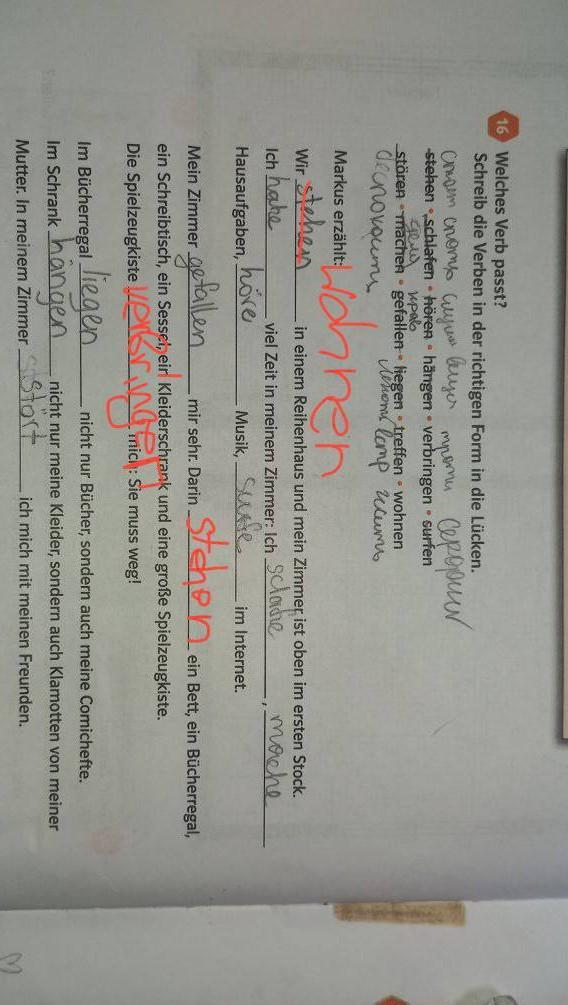 16 Welches Verb passt?
Schreib die Verben in der richtigen Form in die Lücken.
stehen • schlafen • hören • hängen • verbringen • surfen
stören • machen • gefallen • liegen • treffen • wohnen
Markus erzählt: wohnen
Wir stehen in einem Reihenhaus und mein Zimmer ist oben im ersten Stock.
Ich habe viel Zeit in meinem Zimmer: Ich schlafe, mache
Hausaufgaben, höre Musik, surfe im Internet.
Mein Zimmer gefallen mir sehr. Darin stehen ein Bett, ein Bücherregal,
ein Schreibtisch, ein Sessel, ein Kleiderschrank und eine große Spielzeugkiste.
Die Spielzeugkiste verbringen mich: Sie muss weg!
Im Bücherregal liegen nicht nur Bücher, sondern auch meine Comichefte.
Im Schrank hängen nicht nur meine Kleider, sondern auch Klamotten von meiner
Mutter. In meinem Zimmer stört ich mich mit meinen Freunden.